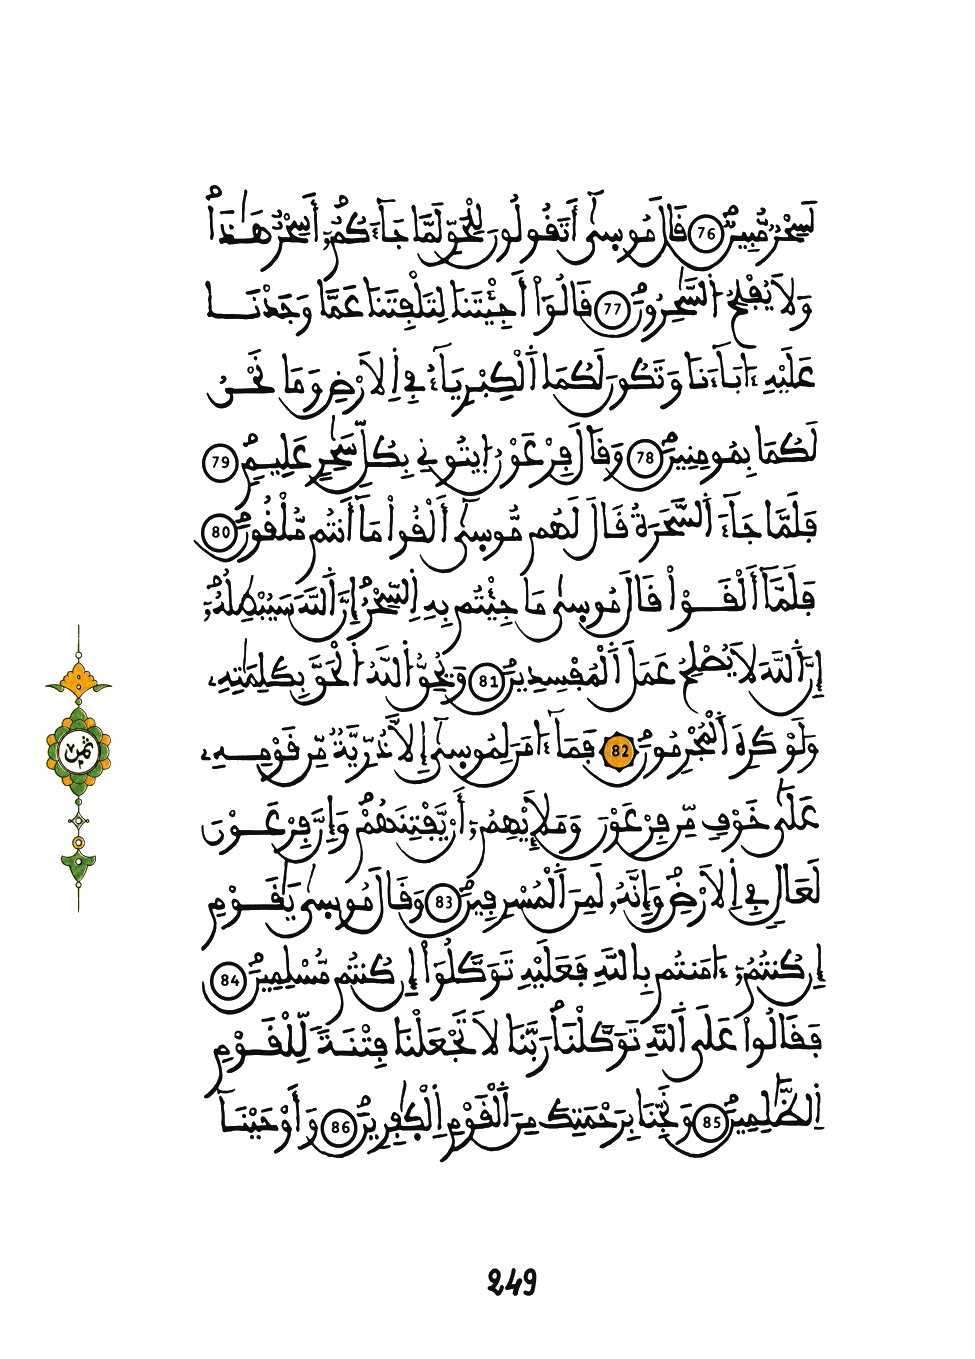 لَسِحْرٞ مُّبِينٞ 76 قَالَ مُوسىٰٓ أَتَقُولُونَ لِلْحَقِّ لَمَّا جَآءَكُمُۥٓ أَسِحْرٌ هَٰذَا
وَلَا يُفْلِحُ اُ۬لسَّٰحِرُونَ 77 قَالُوٓاْ أَجِئْتَنَا لِتَلْفِتَنَا عَمَّا وَجَدْنَا
عَلَيْهِ ءَابَآءَنَا وَتَكُونَ لَكُمَا اَ۬لْكِبْرِيَآءُ فِے اِ۬لَارْضِ وَمَا نَحْنُ
لَكُمَا بِمُومِنِينَ 78 وَقَالَ فِرْعَوْنُ اُ۪يتُونِے بِكُلِّ سَٰحِرٍ عَلِيمٖ 79
فَلَمَّا جَآءَ اَ۬لسَّحَرَةُ قَالَ لَهُم مُّوسىٰٓ أَلْقُواْ مَآ أَنتُم مُّلْقُونَ 80
فَلَمَّآ أَلْقَوْاْ قَالَ مُوسىٰ مَا جِئْتُم بِهِ اِ۬لسِّحْرُ إِنَّ اَ۬للَّهَ سَيُبْطِلُهُۥٓ
إِنَّ اَ۬للَّهَ لَا يُصْلِحُ عَمَلَ اَ۬لْمُفْسِدِينَ 81 وَيُحِقُّ اُ۬للَّهُ اُ۬لْحَقَّ بِكَلِمَٰتِهِۦ
وَلَوْ كَرِهَ اَ۬لْمُجْرِمُونَ 82 فَمَآ ءَامَنَ لِمُوسىٰٓ إِلَّا ذُرِّيَّةٞ مِّن قَوْمِهِۦ
عَلَىٰ خَوْفٖ مِّن فِرْعَوْنَ وَمَلَإِيْهِمُۥٓ أَنْ يَّفْتِنَهُمْ وَإِنَّ فِرْعَوْنَ
لَعَالٖ فِے اِ۬لَارْضِ وَإِنَّهُۥ لَمِنَ اَ۬لْمُسْرِفِينَ 83 وَقَالَ مُوسىٰ يَٰقَوْمِ
إِن كُنتُمُۥٓ ءَامَنتُم بِاللَّهِ فَعَلَيْهِ تَوَكَّلُوٓاْ إِن كُنتُم مُّسْلِمِينَ 84
فَقَالُواْ عَلَى اَ۬للَّهِ تَوَكَّلْنَا رَبَّنَا لَا تَجْعَلْنَا فِتْنَةٗ لِّلْقَوْمِ
اِ۬لظَّٰلِمِينَ 85 وَنَجِّنَا بِرَحْمَتِكَ مِنَ اَ۬لْقَوْمِ اِ۬لْكٰفِرِينَ 86 وَأَوْحَيْنَآ
ثمن
249